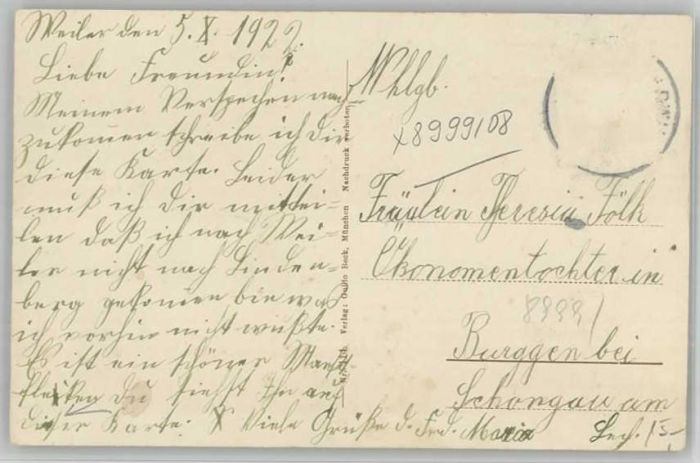 Weiler den 5. X. 1922.
Liebe Freundin!
Meinem Versprechen nach
zukomen schreibe ich Dir
diese Karte. Leider
muß ich Dir mittei-
len daß ich nach Wei-
ler nicht nach Linden-
berg gekomen bin was
ich vorhin nicht wußte.
Es ist ein schöner Markt-
flecken Du siehst Ihn auf
dieser Karte. Viele Grüße d. Frd. Maria
Verlag: Otto Beck, München Nachdruck verboten
Whlgb.
x8999108
Fräulein Theresia Fölk
Ökonomentochter in
Burggen bei
Schongau am
Lech.